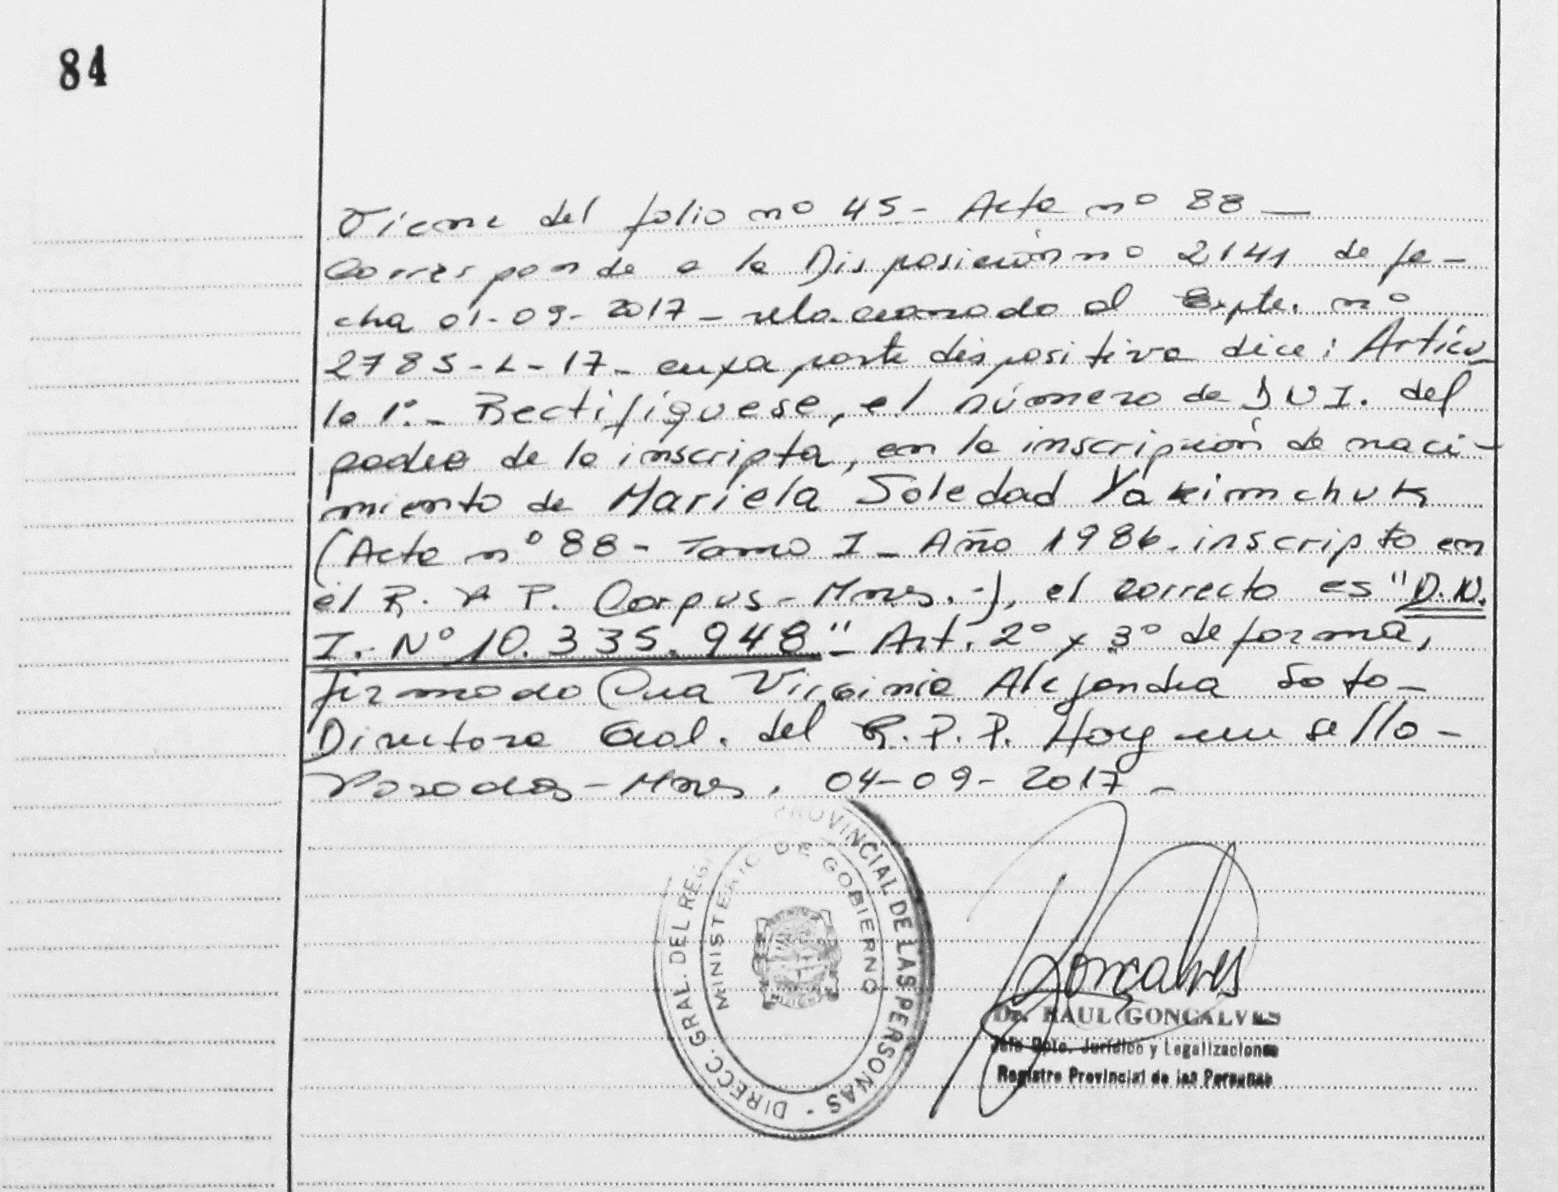 84
Viene del folio nº 45 - Acta nº 88 —
Corresponde a la Disposición nº 2141 de fe-
cha 01-09-2017 - relacionado al Expte. nº
2785-L-17- cuya parte dispositiva dice: Artícu-
lo 1º.- Rectifíquese, el número de DNI. del
padre de la inscripta, en la inscripción de naci-
miento de Mariela Soledad Yakimchuk
(Acta nº 88 - Tomo I - Año 1986. inscripto en
el R. de P. Corpus - Mnes. -), el correcto es "D.N.
I.- Nº 10.335.948" - Art. 2º y 3º de forma,
firmado Cra Virginia Alejandra Soto-
Directora Gral. del R.P.P. Hay un sello-
Posadas - Mnes. 04-09-2017 -
DIRECC. GRAL. DEL REGI PROVINCIAL DE LAS PERSONAS -
MINISTERIO DE GOBIERNO
Goncalves
Dr. RAUL GONCALVES
Jefe Dpto. Jurídico y Legalizaciones
Registro Provincial de las Personas